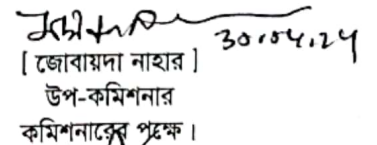 30.04.24
[ জোবায়দা নাহার ]
উপ-কমিশনার
কমিশনারের পক্ষে ।